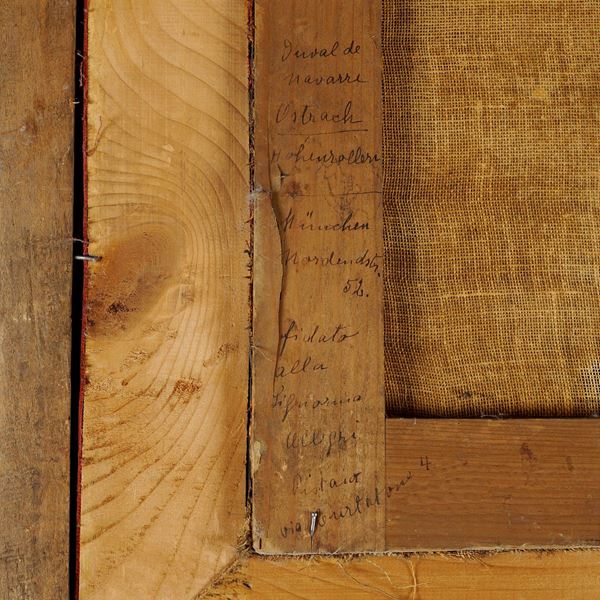 Duval de
Navarre
Ostrach
Hohenzollern
München
Nordendstr.
52.
fidato
alla
Signorina
Allegri
via Curtatone 4